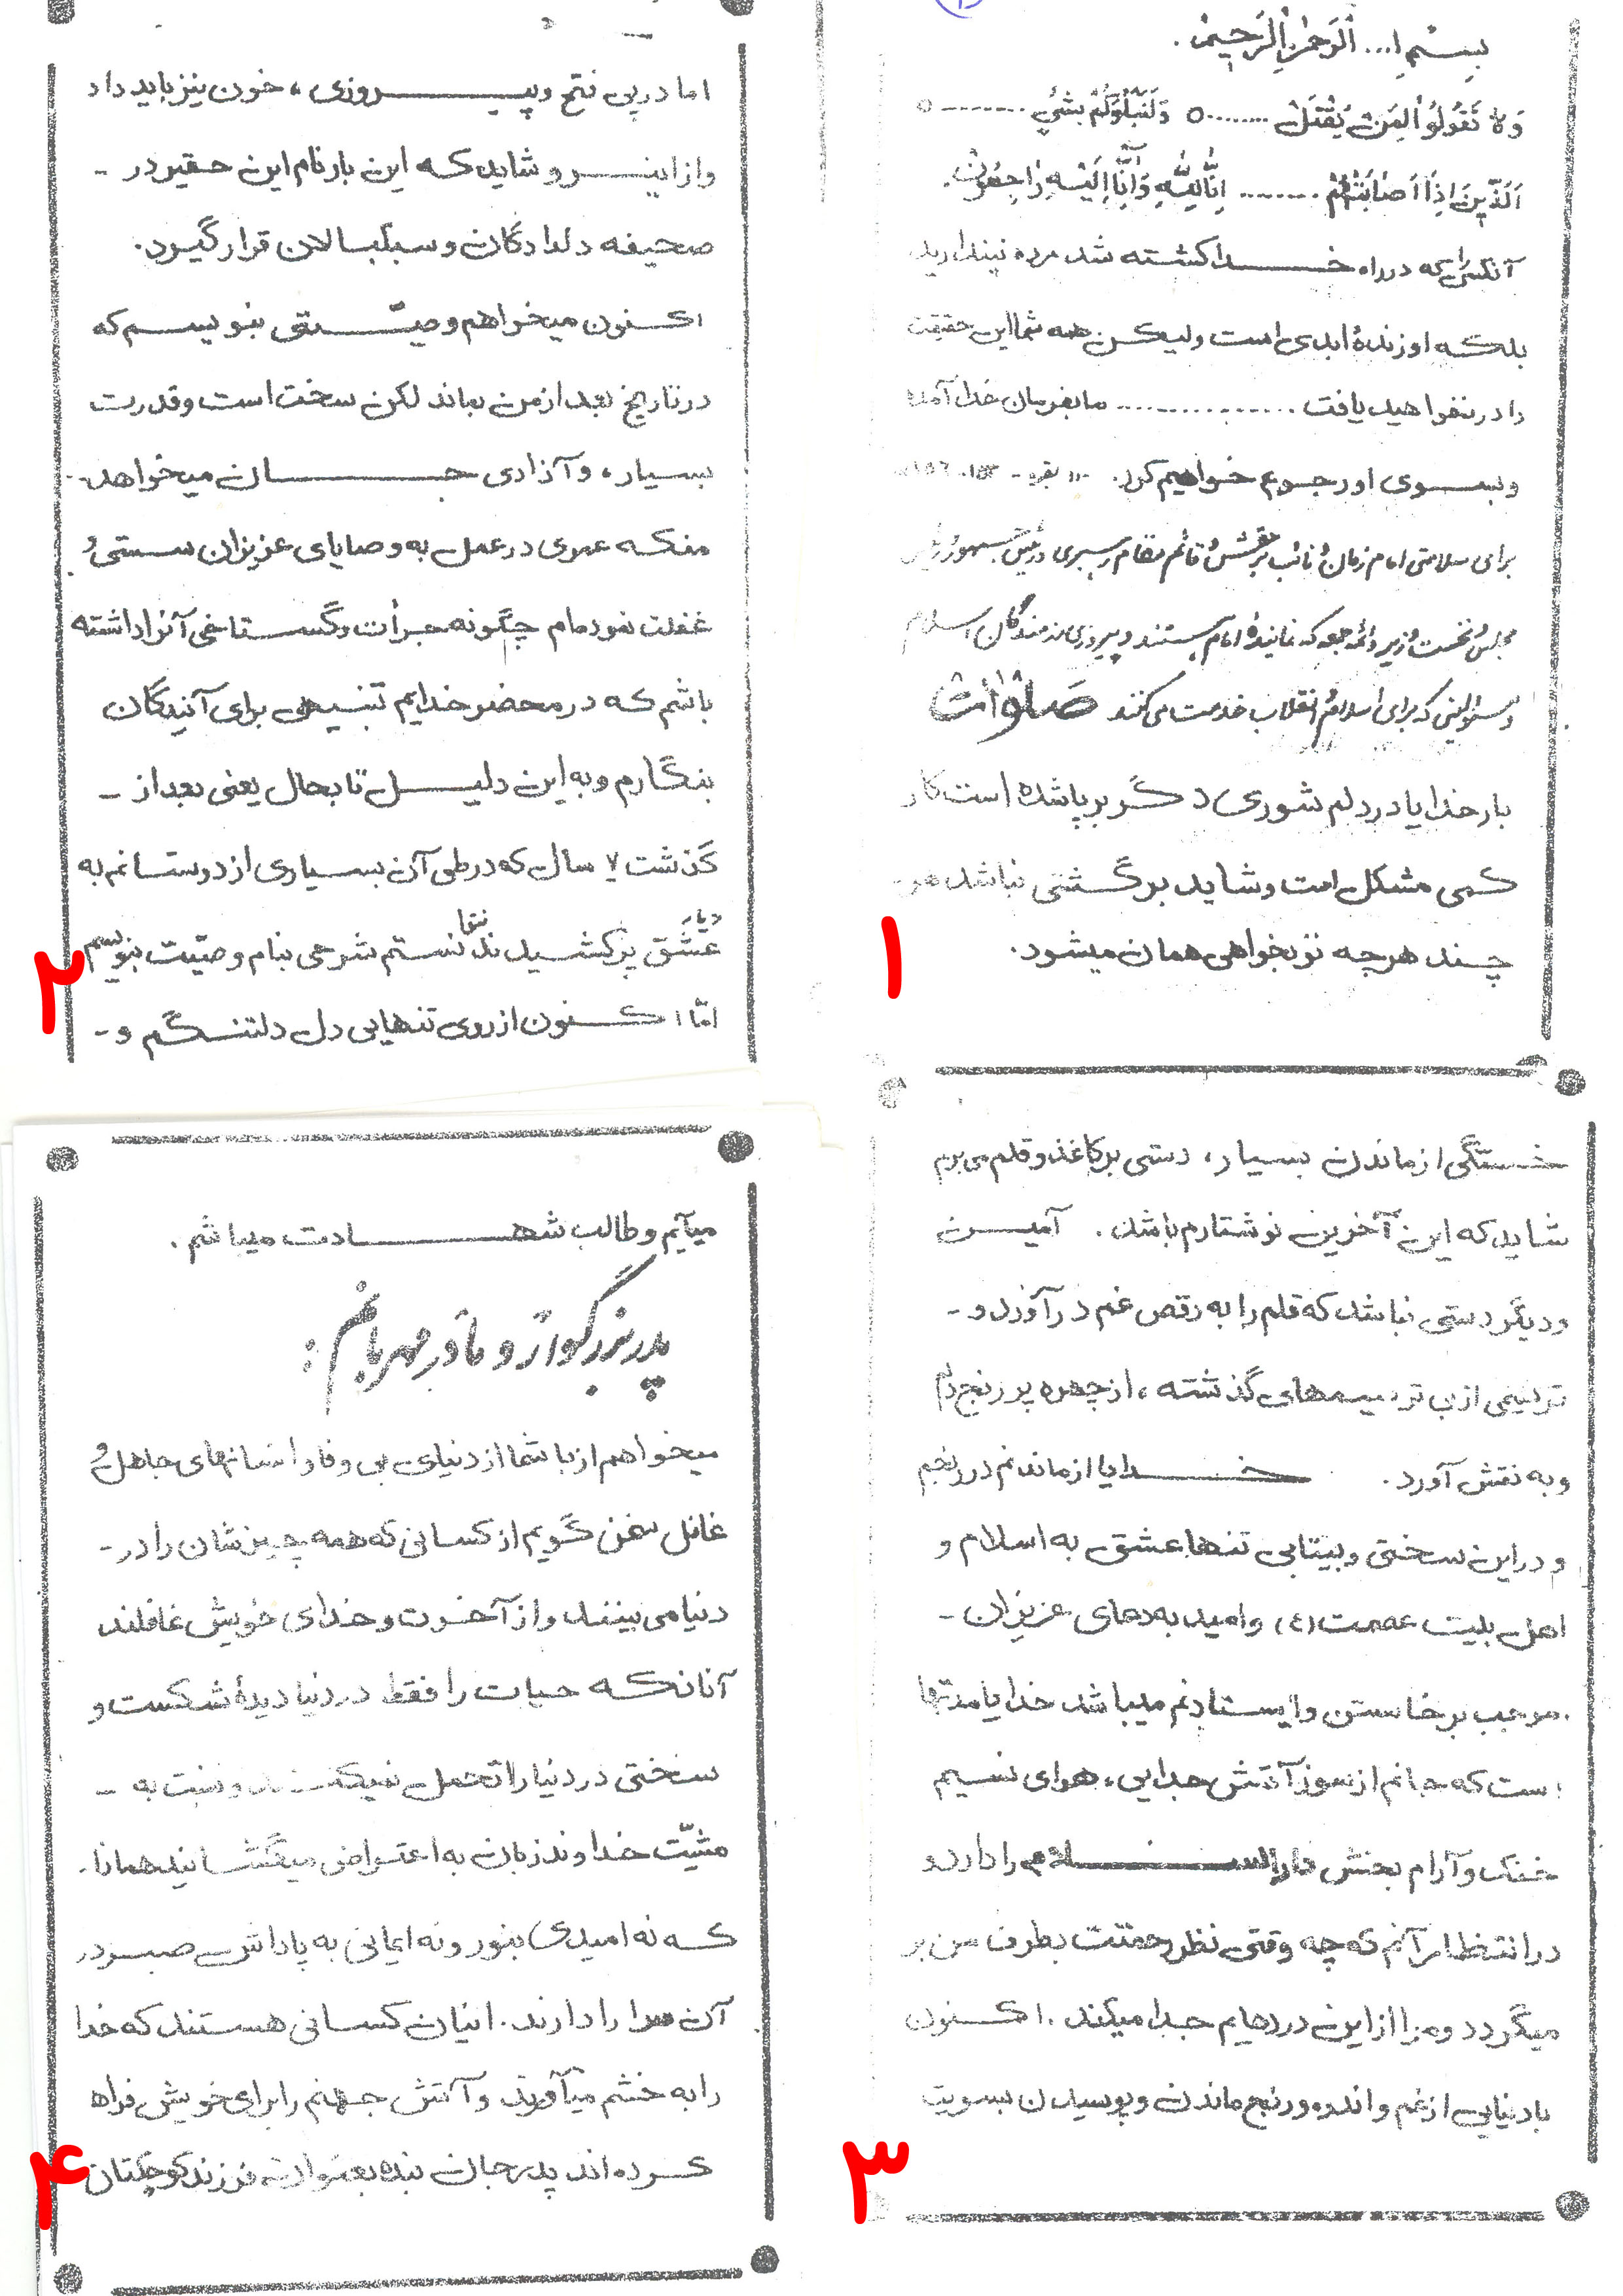 بِسْمِ ا... اَلرَّحْمٰنِ الرَّحیمْ.
وَلا تَقُولُوُا لِمَنْ یُقْتَلْ ........ ٥ وَلَنَبْلُوَنَّکُمْ بِشَیْءٍ -------- ٥
اَلَّذینَ اِذا اَصٰابَتْهُمْ ........ اِنّٰا لِلّٰهِ وَ اِنّٰا اِلَیْهِ رٰاجِعُونْ.
آنکس را که در راه خـدا کشته شد مرده نپندارید
بلـکه او زندهٔ ابدی است ولیـکـن همه شما این حقیقت
را در نخواهید یافت ............... ما بفرمان خدا آمده
و بسوی او رجوع خواهیم کرد. بقره -
برای سلامتی امام زمان و نائب برحقش و قائم مقام رهبری و رئیس جمهور و رئیس
مجلس و نخست وزیر و ائمه جمعه که نمایندهٔ امام هستند و پیروزی رزمندگان اسلام
و مسئولینی که برای اسلام و انقلاب خدمت می کنند صَلَوٰاتْ
بار خدایا در دلم شوری دگر بر پا شده است کار
کمی مشکل است و شاید برگشتی نباشد هر
چـند هر چه تو بخواهی همان میشود.
۱
اما در پی فتح و پیـروزی، خون نیز باید داد
و از اینـرو شاید کـه این بار نام این حقیر در -
صحیفه دلدادگان و سبکبالان قرار گیرد.
اکـنون میخواهم وصیّـتی بنویسـم که
در تاریخ بعد از من بماند لکن سخت است و قدرت
بسیار، و آزادی جـان میخواهد -
منکـه عمری در عمل به وصایای عزیزان سستی و
غفلت نموده‌ام چگونه جرأت و گستاخی آنرا داشته
باشم کـه در محضر خدایم تنبیـهی برای آیندگان
بنگارم و به این دلیـل تا بحال یعنی بعد از -
گذشت ۷ سال که در طی آن بسیاری از دوستانم به
دیار
عشق پر کشیدند نتوانستم شرحی بنام وصیّت بنویسم
امّا اکـنون از روی تنهایی دل دلتنـگم و -
۲
خـستگی از ماندن بسیار، دستی بر کاغذ و قلم می برم
شاید که این آخرین نوشتارم باشد. آمیـن
و دیگر دستی نباشد که قلم را به رقص غم در آورد و -
ترسیمی از بی ترسیمهای گذشته، از چهره پر رنج دلم
و به نقش آورد. خـدایا از ماندنم در رنجم
و در این سختی و بیتابی تنها عشق به اسلام و
اهل بیت عصمت (ع) و امید به دعای عزیزان -
موجب برخاستن و ایستادنم میباشد خدایا مدتها
است که جانم از سوز آتش جدایی، هوای نسیم
خنک و آرام بخش دارالسـلامی را دارد و
در انتظار آنم که چه وقتی نظر رحمتت بطرف من بر
میگردد و مرا از این دردهایم جدا میکند. اکـنون
با دنیایی از غم و اندوه و رنج ماندن و پوسیدن بسویت
۳
میآیم و طالب شهـادت میباشم.
پدر بزرگوار و مادر مهربانم:
میخواهم از با شما از دنیای بی وفا و انسانهای جاهل و
غافل سخن گویم از کسانی که همه چیزشان را در -
دنیا می بینند و از آخرت و خدای خویش غافلند
آنانکـه حیات را فقط در دنیا دیدهٔ شکست و
سختی در دنیا را تحمل نمیکـنند و نسبت به -
مشیّت خداوند زبان به اعتراض میگشـایند همانا -
کـه نه امیدی بنور و نه ایمانی به پاداش صبـر در
آن سرا را دارند. اینان کسانی هستند که خدا
را به خشم میآورند و آتش جهنم را برای خویش فراهـ
کـرده اند پدر جان بنده بعنوان فرزند کوچکتان
۴